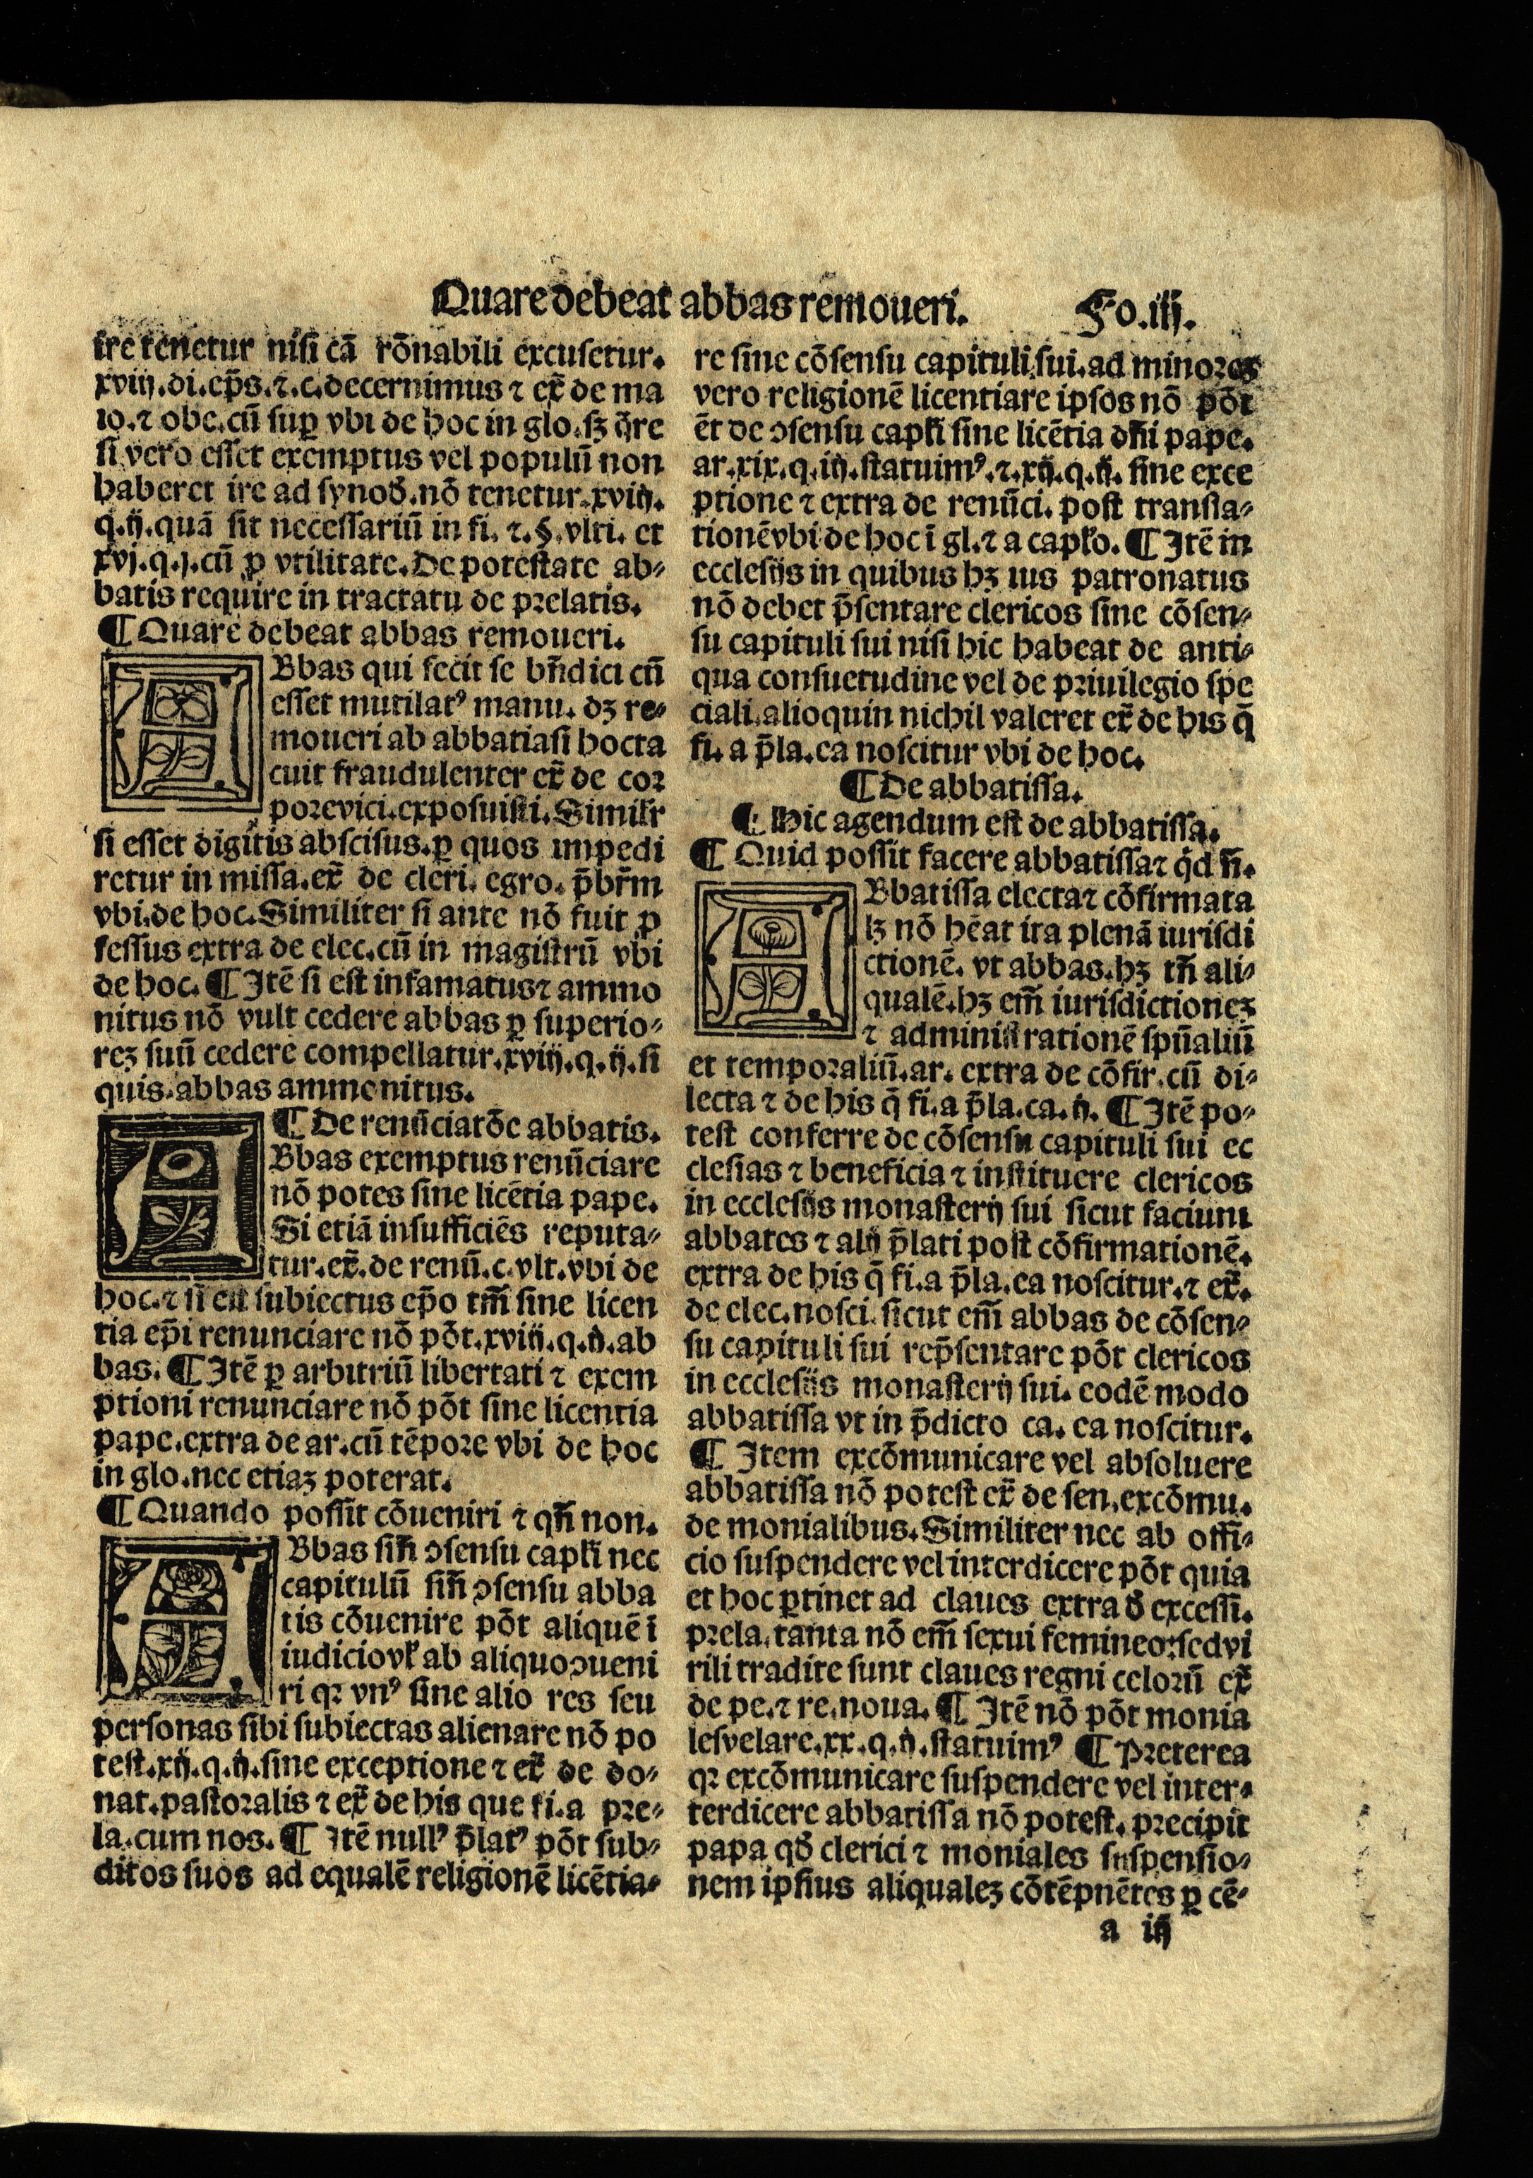 Quare debeat abbas remoueri. Fo.iij.
ire tenetur nisi cā rōnabili excusetur.
xviij.di.ep̄s.⁊.c.decernimus ⁊ ex̄ de ma
io.⁊ obe.cū suꝑ vbi de hoc in glo.sꝫ q̄re
si vero esset exemptus vel populū non
haberet ire ad synod̄.nō tenetur.xviij.
q.ij.quā sit necessariū in fi. ⁊.§.vlti. et
xvj.q.j.cū ꝓ vtilitate.De potestate ab⸗
batis require in tractatu de prelatis.
¶ Quare debeat abbas remoueri.
ABbas qui fecit se bn̄dici cū
esset mutilatꝰ manu. dꝫ re⸗
moueri ab abbatiasi hocta
cuit fraudulenter ex̄ de cor
porevici.exposuisti.Similr̄
si esset digitis abscisus.ꝑ quos impedi
retur in missa.ex̄ de cleri.egro.p̄br̄m
vbi.de hoc.Similiter si ante nō fuit ꝓ
fessus extra de elec.cū in magistrū vbi
de hoc.¶ Itē si est infamatus⁊ ammo
nitus nō vult cedere abbas ꝑ superio⸗
reꝫ suū cedere compellatur.xviij.q.ij.si
quis.abbas ammonitus.
¶ De renūciatōe abbatis.
ABbas exemptus renūciare
nō potes sine licētia pape.
Si etiā insufficiēs reputa⸗
tur.ex̄.de renū.c.vlt.vbi de
hoc.⁊ si est subiectus ep̄o tm̄ sine licen
tia ep̄i renunciare nō pōt.xviij.q.ij.ab
bas.¶ Itē ꝑ arbitriū libertati ⁊ exem
ptioni renunciare nō pōt sine licentia
pape.extra de ar.cū tēpore vbi de hoc
in glo.nec etiaꝫ poterat.
¶ Quando possit cōueniri ⁊ qn̄ non.
ABbas sin̄ ɔsensu capl̄i nec
capitulū sin̄ ɔsensu abba
tis cōuenire pōt aliquē ī
iudiciovl̄ ab aliquoɔueni
ri qꝛ vnꝰ sine alio res seu
personas sibi subiectas alienare nō po
test.xij.q.ij.sine exceptione ⁊ ex̄ de do⸗
nat.pastoralis ⁊ ex̄ de his que fi.a pre⸗
la.cum nos.¶ Itē nullꝰ p̄latꝰ pōt sub⸗
ditos suos ad equalē religionē licētia⸗
re sine cōsensu capituli sui.ad minores
vero religionē licentiare ipsos nō pōt
ēt de ɔsensu capl̄i sine licētia dn̄i pape.
ar.xix.q.iij.statuimꝰ.⁊.xij.q.ij. sine exce
ptione ⁊ extra de renūci. post transla⸗
tionēvbi de hoc ī gl.⁊ a capl̄o.¶ Itē in
ecclesijs in quibus hꝫ ius patronatus
nō debet p̄sentare clericos sine cōsen⸗
su capituli sui nisi hic habeat de anti⸗
qua consuetudine vel de priuilegio spe
ciali.alioquin nichil valeret ex̄ de his q̄
fi. a p̄la.ea noscitur vbi de hoc.
¶ De abbatissa.
¶ Hic agendum est de abbatissa.
¶ Quid possit facere abbatissa⁊ qd̄ n̄.
ABbatissa electa⁊ cōfirmata
lꝫ nō hēat ita plenā iurisdi
ctionē. vt abbas.hꝫ tn̄ ali⸗
qualē.hꝫ em̄ iurisdictioneꝫ
⁊ administrationē spn̄aliū
et temporaliū.ar. extra de cōfir.cū di⸗
lecta ⁊ de his q̄ fi.a p̄la.ca.ij.¶ Itē po⸗
test conferre de cōsensu capituli sui ec
clesias ⁊ beneficia ⁊ instituere clericos
in ecclesijs monasterij sui sicut faciunt
abbates ⁊ alij p̄lati post cōfirmationē.
extra de his q̄ fi.a p̄la.ea noscitur.⁊ ex̄.
de elec.nosci.sicut em̄ abbas de cōsen⸗
su capituli sui rep̄sentare pōt clericos
in ecclesijs monasterij sui. eodē modo
abbatissa vt in p̄dicto ca. ea noscitur.
¶ Item excōmunicare vel absoluere
abbatissa nō potest ex̄ de sen.excōmu.
de monialibus.Similiter nec ab offi⸗
cio suspendere vel interdicere pōt quia
et hoc ꝑtinet ad claues extra d̄ excessi.
prela.tanta nō em̄ sexui femineo:sedvi
rili tradite sunt claues regni celorū ex̄
de pe.⁊ re.noua.¶ Itē nō pōt monia
lesvelare.xx.q.ij.statuimꝰ ¶ Preterea
qꝛ excōmunicare suspendere vel inter⸗
terdicere abbatissa nō potest. precipit
papa qd̄ clerici ⁊ moniales suspensio⸗
nem ipsius aliqualeꝫ cōtēpnētes ꝑ cē⸗
a iij